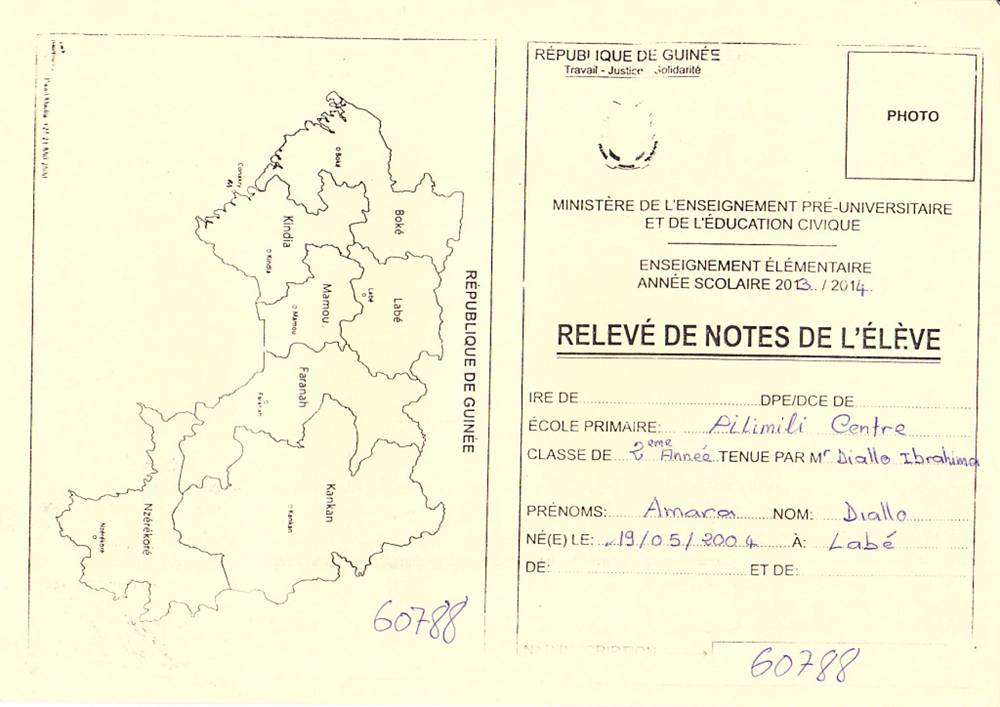 RÉPUBLIQUE DE GUINÉE
Boké
Boké
Conakry
Kindia
Kindia
Labé
Labé
Mamou
Mamou
Faranah
Faranah
Kankan
Kankan
Nzérékoré
Nzérékoré
60788
RÉPUBLIQUE DE GUINÉE
Travail - Justice Solidarité
PHOTO
MINISTÈRE DE L'ENSEIGNEMENT PRÉ-UNIVERSITAIRE
ET DE L'ÉDUCATION CIVIQUE
ENSEIGNEMENT ÉLÉMENTAIRE
ANNÉE SCOLAIRE 2013../2014..
RELEVÉ DE NOTES DE L'ÉLÈVE
IRE DE DPE/DCE DE
ÉCOLE PRIMAIRE: Pilimili Centre
CLASSE DE 2eme Année TENUE PAR Mr Diallo Ibrahima
PRÉNOMS: Amara NOM: Diallo
NÉ(E) LE: 19/05/2004 À: Labé
DE: ET DE:
60788